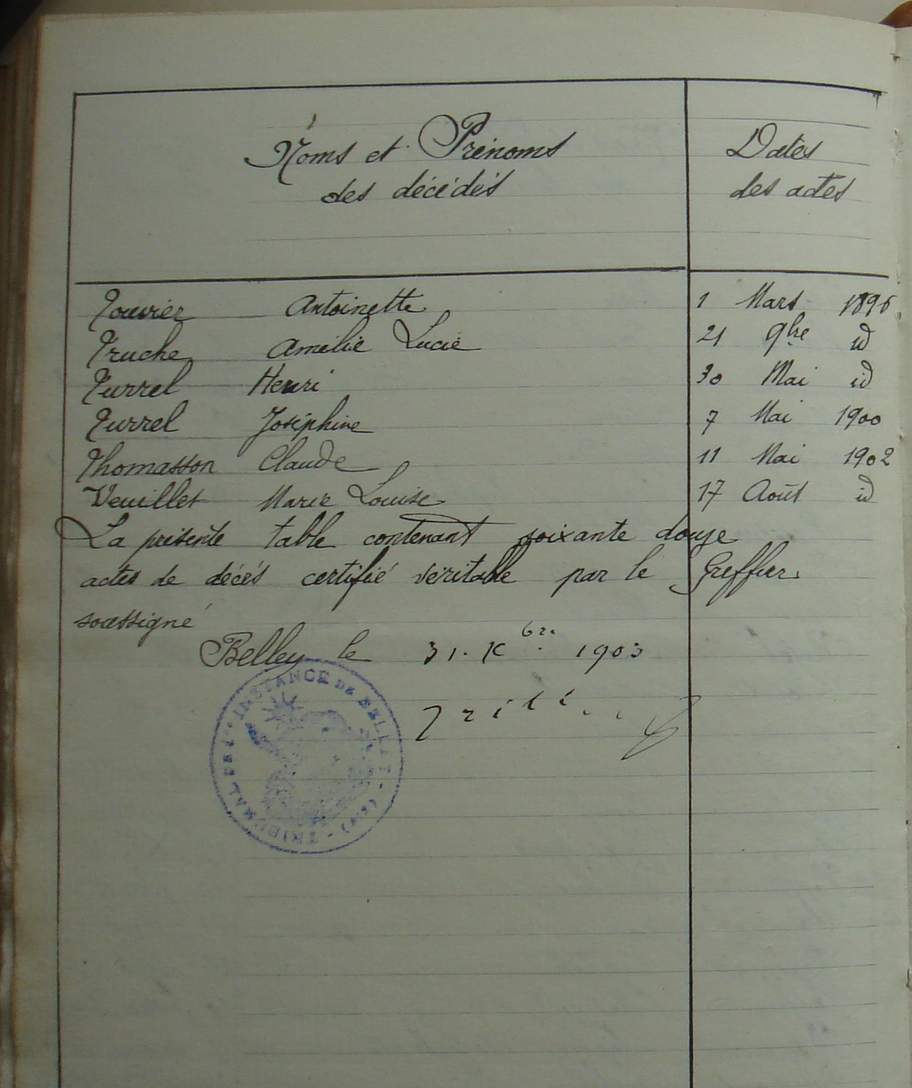 Noms et Prénoms
des décédés
Dates
des actes
Touvier Antoinette 1 Mars 1896
Truche Amélie Lucie 21 9bre id
Turrel Henri 30 Mai id
Turrel Joséphine 7 Mai 1900
Thomasson Claude 11 Mai 1902
Veuillet Marie Louise 17 Août id
La présente table contenant soixante douze
actes de décés certifié véritable par le Greffier
soussigné
Belley le 31. Xbre. 1903
TRIBUNAL DE 1re INSTANCE DE BELLEY - (AIN) -